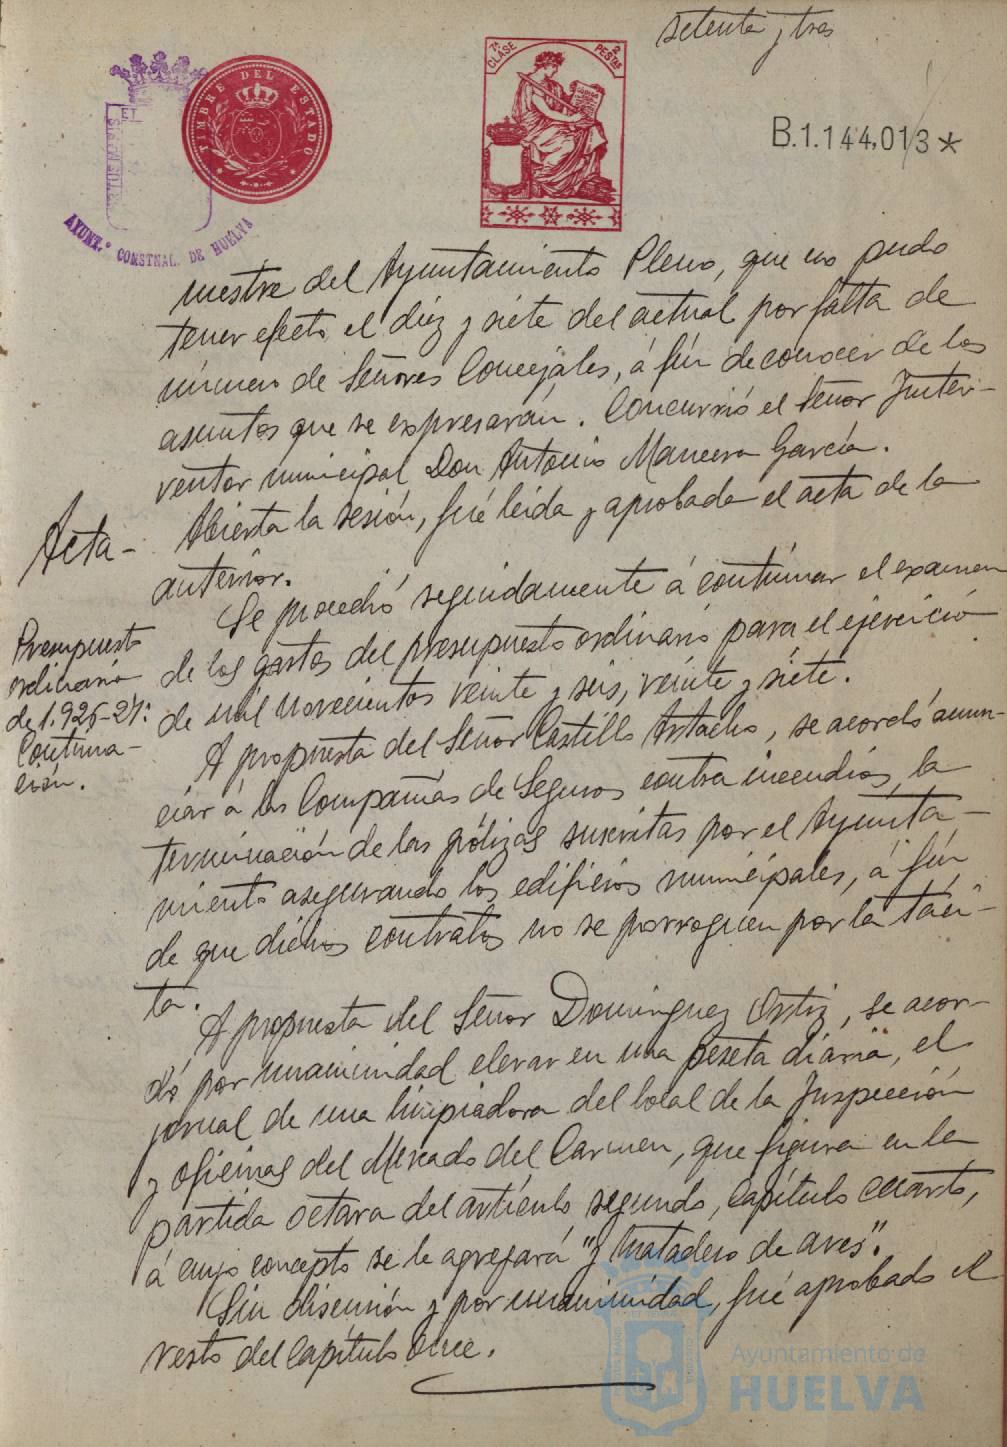 setenta y tres
TIMBRE DEL ESTADO
7ª CLASE
2 PESTAS
B.1.144,013*
ET
AYUNT.º CONSTNAL. DE HUELVA
mestre del Ayuntamiento Pleno, que no pudo
tener efecto el diez y siete del actual por falta de
número de Señores Concejales, á fin de conocer de los
asuntos que se expresarán. Concurrió el Señor Inter-
ventor municipal Don Antonio Mancera García.
Acta-
Abierta la sesión, fué leida y aprobada el acta de la
anterior.
Presupuesto
ordinario
de 1.926-27:
Continua-
ción.
Se procedió seguidamente á continuar el examen
de los gastos del presupuesto ordinario para el ejercicio
de mil novecientos veinte y seis, veinte y siete.
A propuesta del Señor Castillo Astacho, se acordó anun-
ciar á las Compañías de Seguros contra incendios, la
terminación de las pólizas suscritas por el Ayunta-
miento asegurando los edificios municipales, á fin
de que dichos contratos no se porroguen por la táci-
ta.
A propuesta del Señor Domínguez Ortiz, se acor-
dó por unanimidad elevar en una peseta diaria, el
jornal de una limpiadora del local de la Inspección
y oficinas del Mercado del Carmen, que figura en la
partida octava del artículo segundo, Capítulo cuarto,
á cuyo concepto se le agregará "y Matadero de aves".
Sin discusión y por unanimidad, fué aprobado el
resto del Capítulo once.
Ayuntamiento de
HUELVA